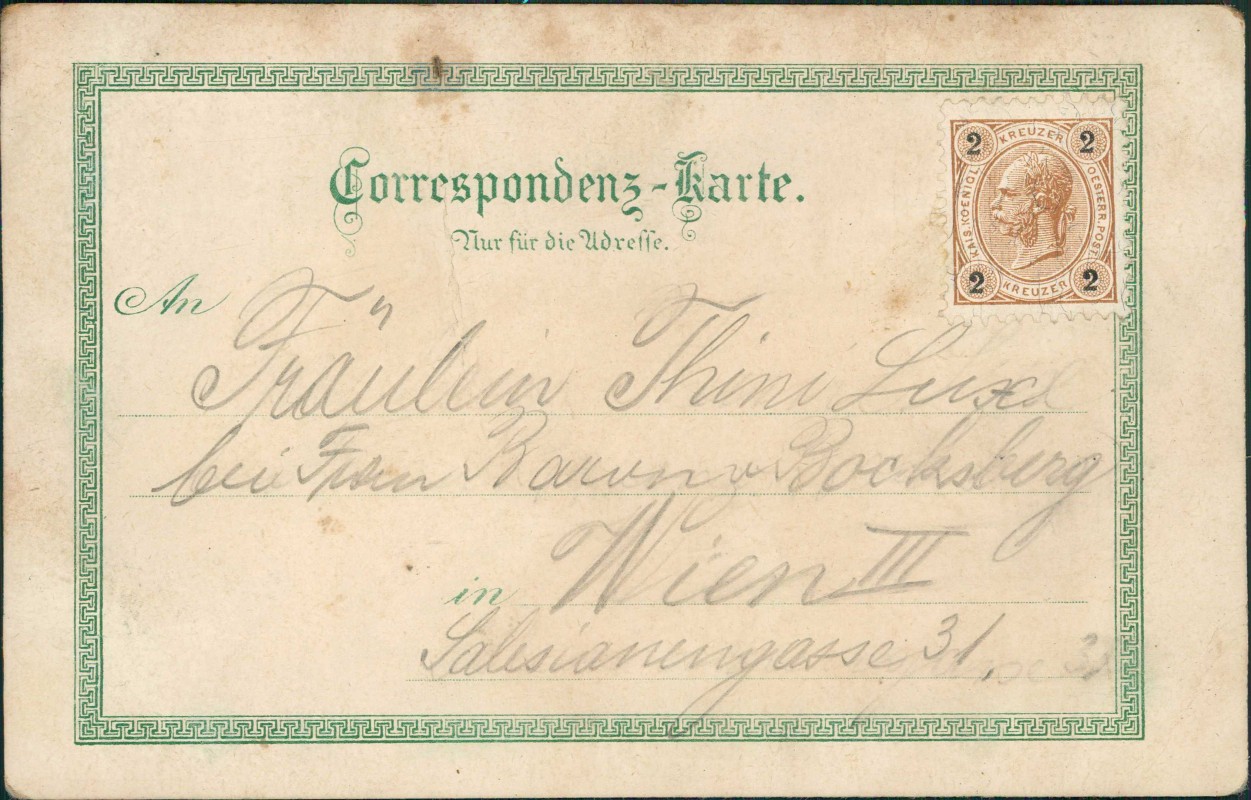 Correspondenz-Karte.
Nur für die Adresse.
2 KREUZER 2
KAIS. KOENIGL. OESTERR. POST.
2 KREUZER 2
An Fräulein Thini
bei Frau Baronin v. Bocksberg
in Wien III
Salesianengasse 31.